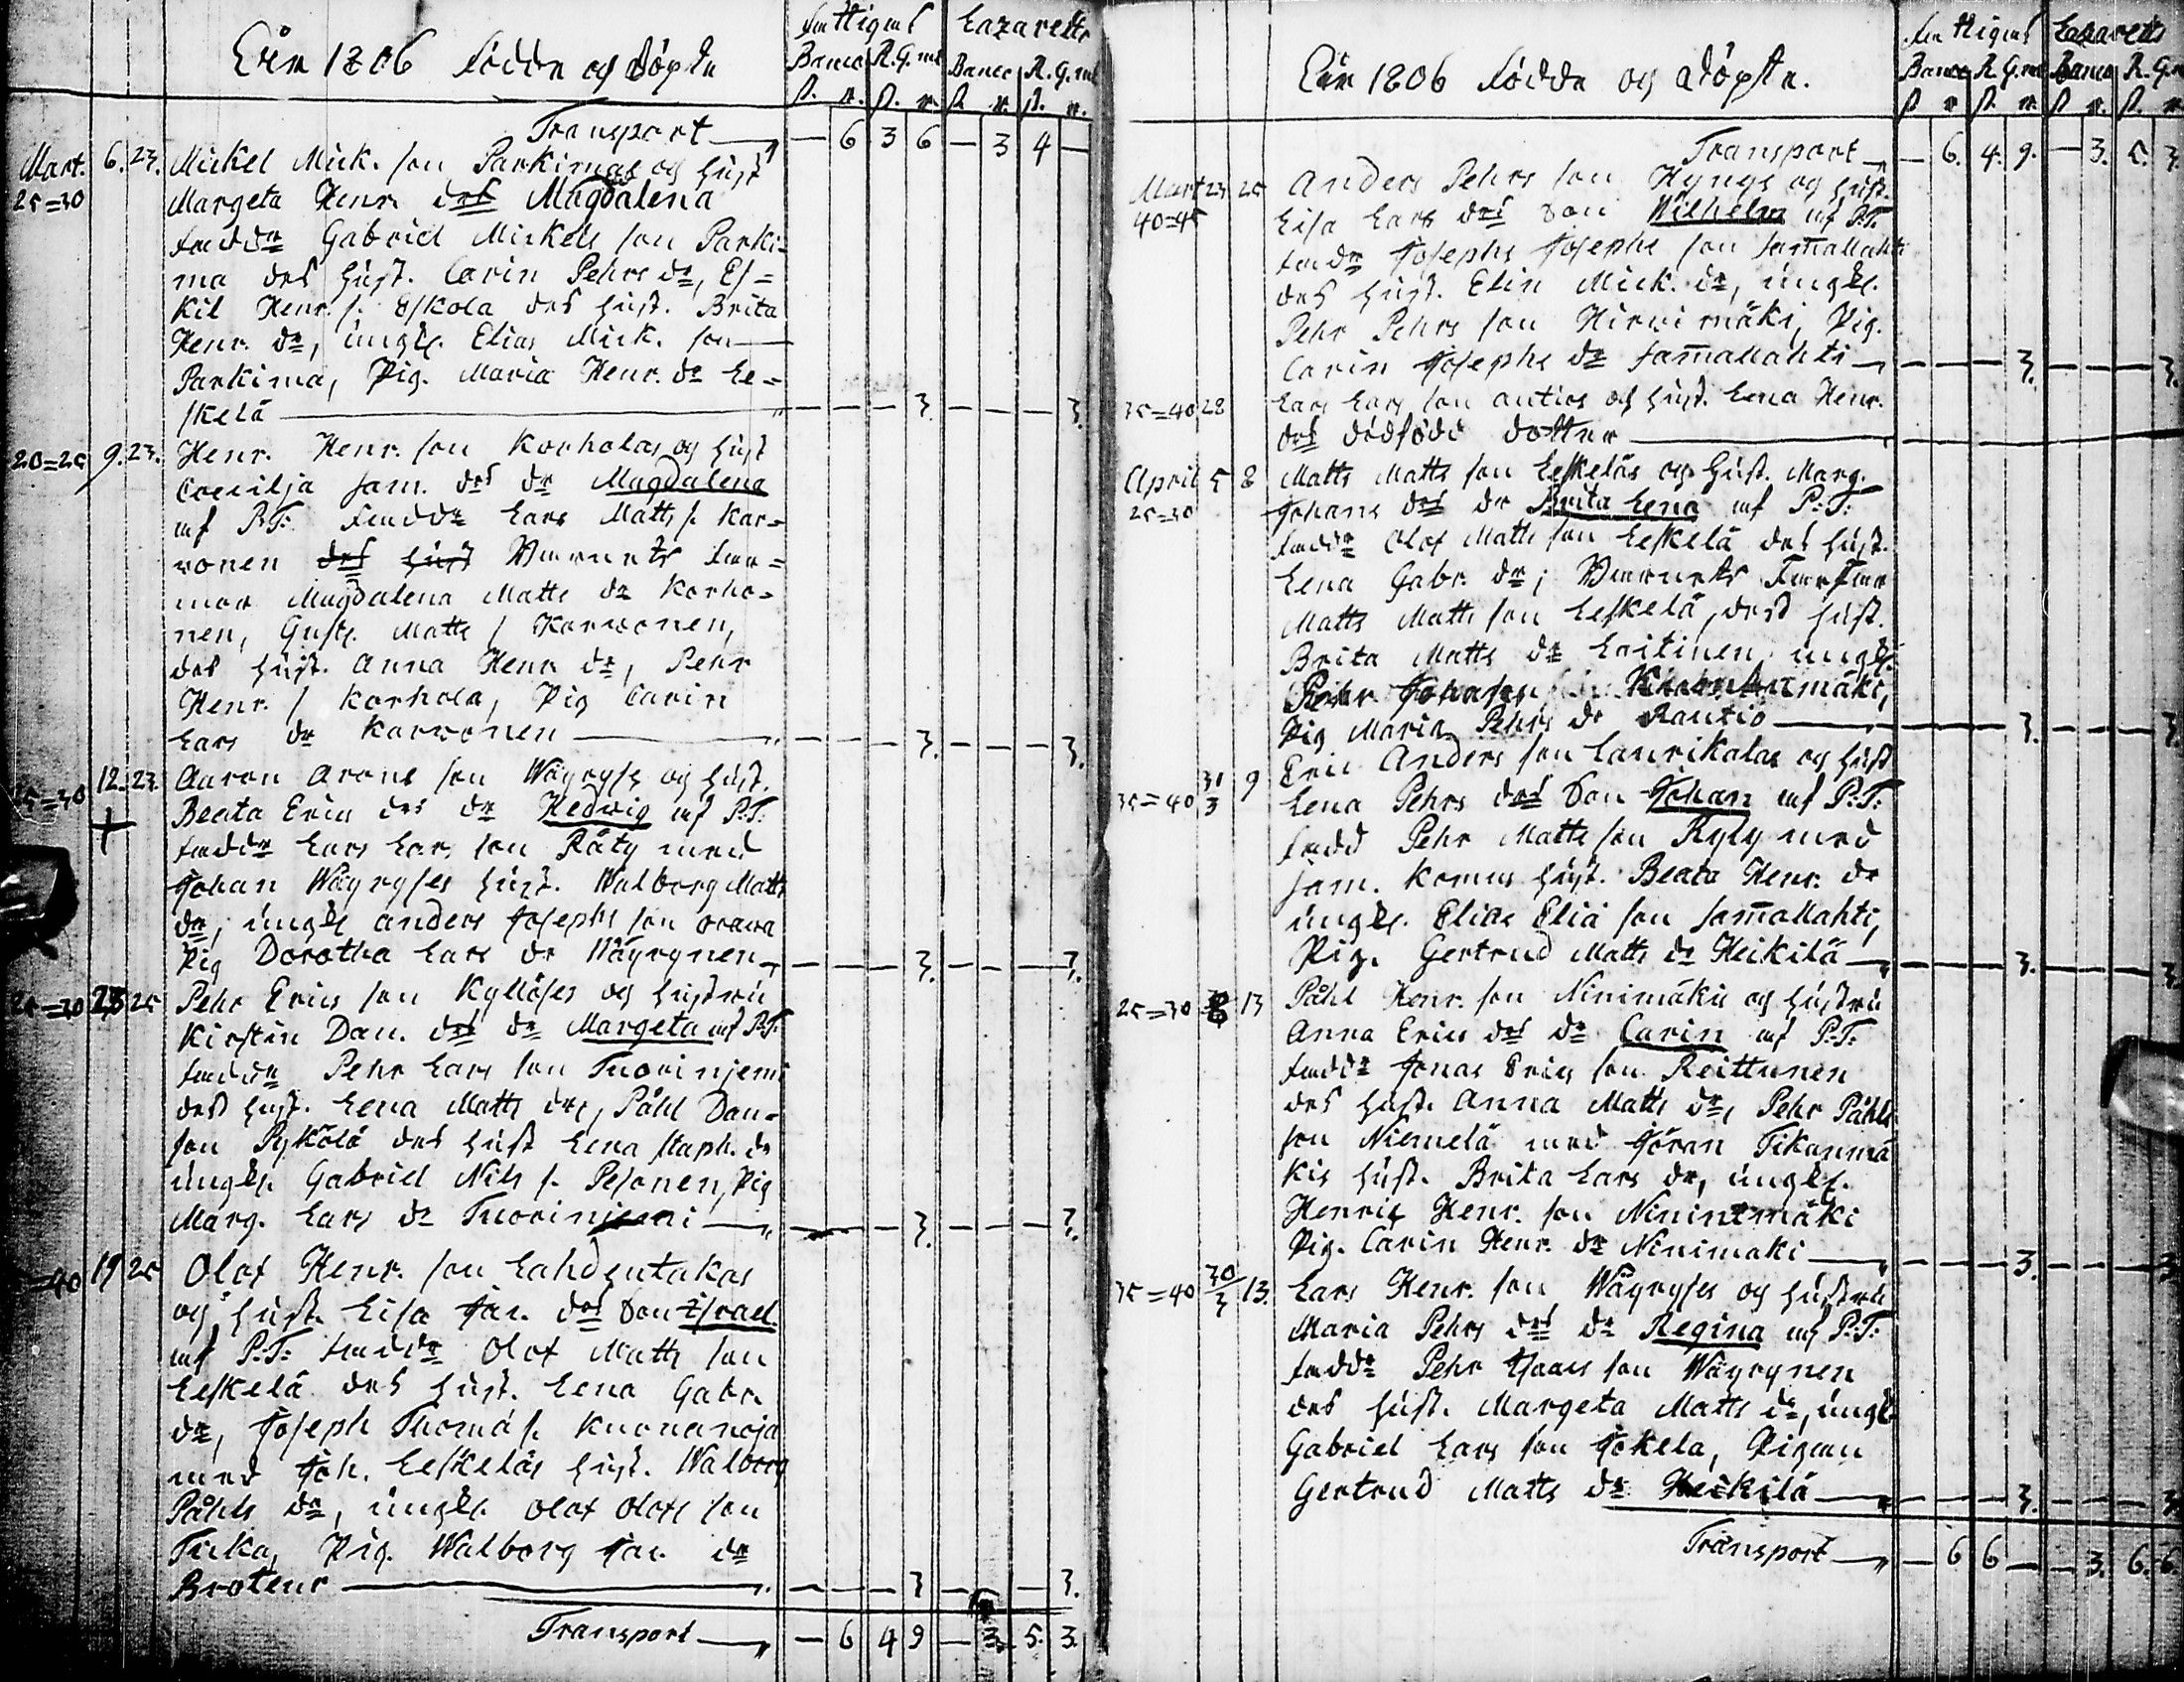 Åhr 1806 födda og döpta
Fattigas Lazaretts
Banco R.G. Banco R.G.
Transport — 6 3 6 — 3 4 —
Mart. 6. 23. Mickel Mick. son Parkimas og hust
25=30 Margeta Henr. dr Magdalena
faddr Gabriel Mickels son Parki=
ma des hust. Carin Pehrs dr, Es=
kil Henr. s. Eskola des hust. Brita
Henr. dr, ungk. Elias Mick. son
Parkima, Pig. Maria Henr. dr Le=
skelä — — — 3. — — — 3.
20=25 9. 23. Henr. Henr. son Korholas og hust
Coecilja Sam. dr dr Magdalena
af P.T: faddr Lars Matts s. Kar=
vonen des hust Barnets far=
mor Magdalena Matts dr Korho=
nen, Gust. Matts s Karvonen,
des hust. Anna Henr dr, Pehr
Henr. s Korhola, Pig Carin
Lars dr Karvonen — — — 3. — — — 3.
25=30 12. 23. Aaron Arons son Wäyryses og hust.
Beata Erics dr dr Hedvig af P.T.
faddr Lars Lars son Räty med
Johan Wäyryses hust. Walborg Matts
dr, ungk Anders Josephs son Orava
Pig Dorothea Lars dr Wäyrynen — — — 3. — — — 3.
25=30 23 25 Pehr Erics son Kyllöses og hustru
Kirstin Dan. dr dr Margeta af P.T.
faddr Pehr Lars son Tuorinjemi
des hust. Lena Matts dr, Påhl Dan.
son Pykölä des hust Lena Staph. dr
ungk. Gabriel Nils s. Pesonen, Pig
Marg. Lars dr Tuorinjemi — — — 3. — — — 3.
=40 19 25 Olof Henr. son Lahdentakas
og hust. Lisa Jac. dr Son Israel
af P.T: faddr Olof Matts son
Leskelä des hust. Lena Gabr.
dr, Joseph Thomæ s. Kuonanoja
med Joh. Leskeläs hust. Walborg
Påhls dr, ungk. Olof Olofs son
Tuka, Pig. Walborg Jac. dr
Broteur — — — 3 — — — 3.
Transport — 6 4 9 — 3. 5. 3.
Åhr 1806 födda og döpta.
Fattigas Lazaretts
Banco R.G. Banco R.G.
Transport — 6. 4. 9. — 3. 5. 3
Mart 23 25 Anders Pehrs son Hynges og hust.
40=45 Lisa Lars dr Son Wilhelm af P.T.
faddr Josephs Josephs son Sam̄allahti
des hust. Elin Mick. dr, ungk.
Pehr Pehrs son Hirvimäki, Pig.
Carin Josephs dr Sam̄allahti — — — 3. — — — 3.
35=40 28 Lars Lars son Antios og hust. Lena Henr.
dr dödfödd dotter
April 5 8 Matts Matts son Leskeläs og hust. Marg.
25=30 Johans dr dr Brita Lena af P.T:
faddr Olof Matts son Leskelä des hust.
Lena Gabr. dr; Barnets Farfar
Matts Matts son Leskelä, des hust.
Brita Matts dr Laitinen ungk.
Pehr Johans
Pig Maria Pehrs dr Rautio — — — 3. — — — 3
35=40 31/3 9 Eric Anders son Laurikalas og hust
Lena Pehrs dr Son Johan af P.T:
fadd Pehr Matts son Ryly med
Sam. Komus hust. Beata Henr. dr
ungk. Elias Eliæ son Sam̄allahti,
Pig. Gertrud Matts dr Heikilä — — — 3. — — — 3
25=30 13 Påhl Henr. son Ninimäkis og hustru
Anna Erics dr dr Carin af P.T.
faddr Jonas Erics son Reittunen
des hust. Anna Matts dr, Pehr Påhls
son Niemelä med Jöran Tikanmä
kis hust. Brita Lars dr, ungk.
Henric Henr. son Ninimäki
Pig. Carin Henr. dr Ninimaki — — — 3. — — — 3
35=40 30/3 13. Lars Henr. son Wäyryses og hustru
Maria Pehrs dr dr Regina af P.T:
faddr Pehr Isaacs son Wäyrynen
des hust. Margeta Matts dr, ungk
Gabriel Lars son Jokela, Pigan
Gertrud Matts dr Heikilä — — — 3. — — — 3
Transport — 6 6 — — 3. 6. 6